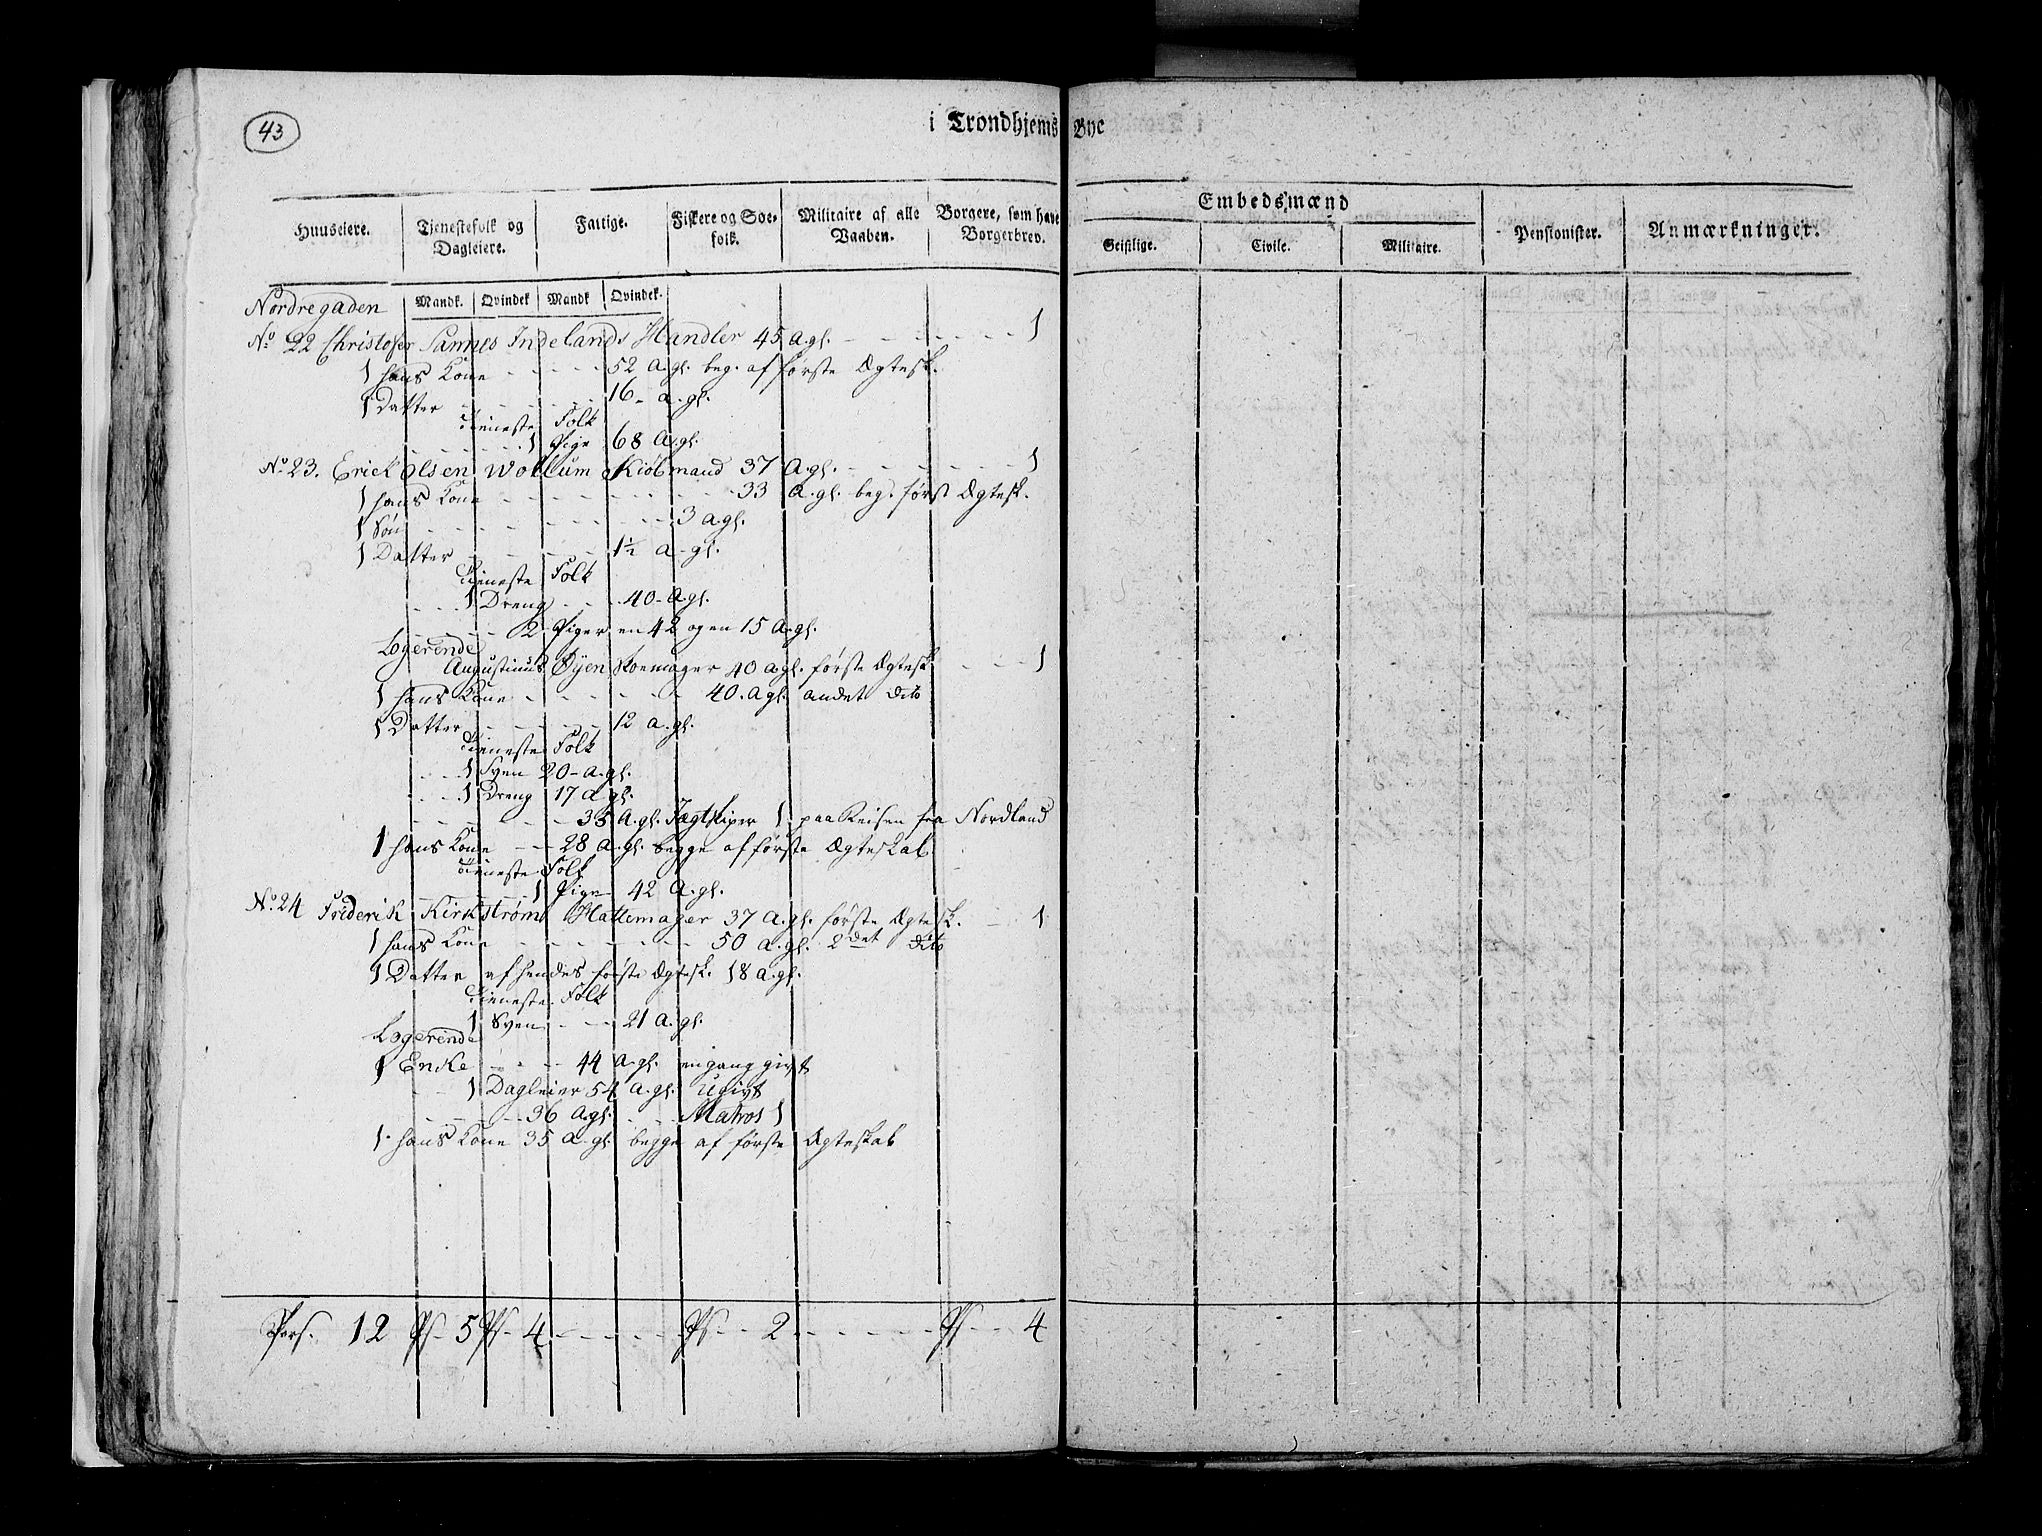 43
i Trondhjems Bye
Huuseiere. Tjenestefolk og Dagleiere. Fattige. Fiskere og Soe-folk. Militaire af alle Vaaben. Borgere, som have Borgerbrev. Embedsmænd Geistlige. Civile. Militaire. Pensionister. Anmærkninger.
Mandk. Qvindek Mandk Qvindek.
Nordregaden
No 22 Christofer Sannes Indelands Handler 45 A. gl. - - - - - - 1
1 hans Kone - - - - - 52 A. gl. beg. af første Ægtesk.
1 Datter - - - - - 16 - a. gl.
Tieneste Folk
- - - - - 1 Pige 68 A. gl.
No 23. Erick Olsen Wollum Kiøbmand 37 A. gl. - - - - - - 1
1 hans Kone - - - - - - - - 33 A. gl. beg. først Ægtesk.
1 Søn - - - - - - - - 3 a gl.
1 Datter - - - - - 1½ a - gl.
Tieneste Folk
- - - 1 Dreng - - - 40 - A. gl.
- - - - 2 Piger en 42 og en 15 A. gl.
Logerende
Augustinus Øyen Skoemager 40 a gl. første Ægtesk - - - 1
1 hans Kone - - - - - - - 40. A gl. andet dito
1 Datter - - - - - 12 a. gl.
Tieneste Folk
- - - 1 Sven 20 - a. gl.
- - - 1 Dreng 17 A gl.
- - - - - - - 35 A. gl. Jægtskiper 1 paa Reisen fra Nordland
1 hans Kone - - - 28 a. gl. begge af første Ægteskab
Tieneste Folk
- - - - 1 Pige 42 A. gl.
No 24 Friderik Kirkstrøm Hattemager 37 A. gl. første Ægtesk. - - 1
1 hans Kone - - - - - - - 50 A. gl. 2det dito
1 Datter af hendes første Ægtesk. 18 a. gl.
Tieneste Folk
1 Sven - - - 21 A. gl.
Logerende
1 Enke - - - - 44 A. gl. en gang givt
- - 1 Dagleier 54 A. gl. Ugivt
- - - - - 36 A. gl. - - Matros 1
1. hans Kone 35 A. gl. begge af første Ægteskab
Pers. 12 Ps - 5 Ps - 4 - - - - - Ps - - 2 - - - - - - Ps - - 4